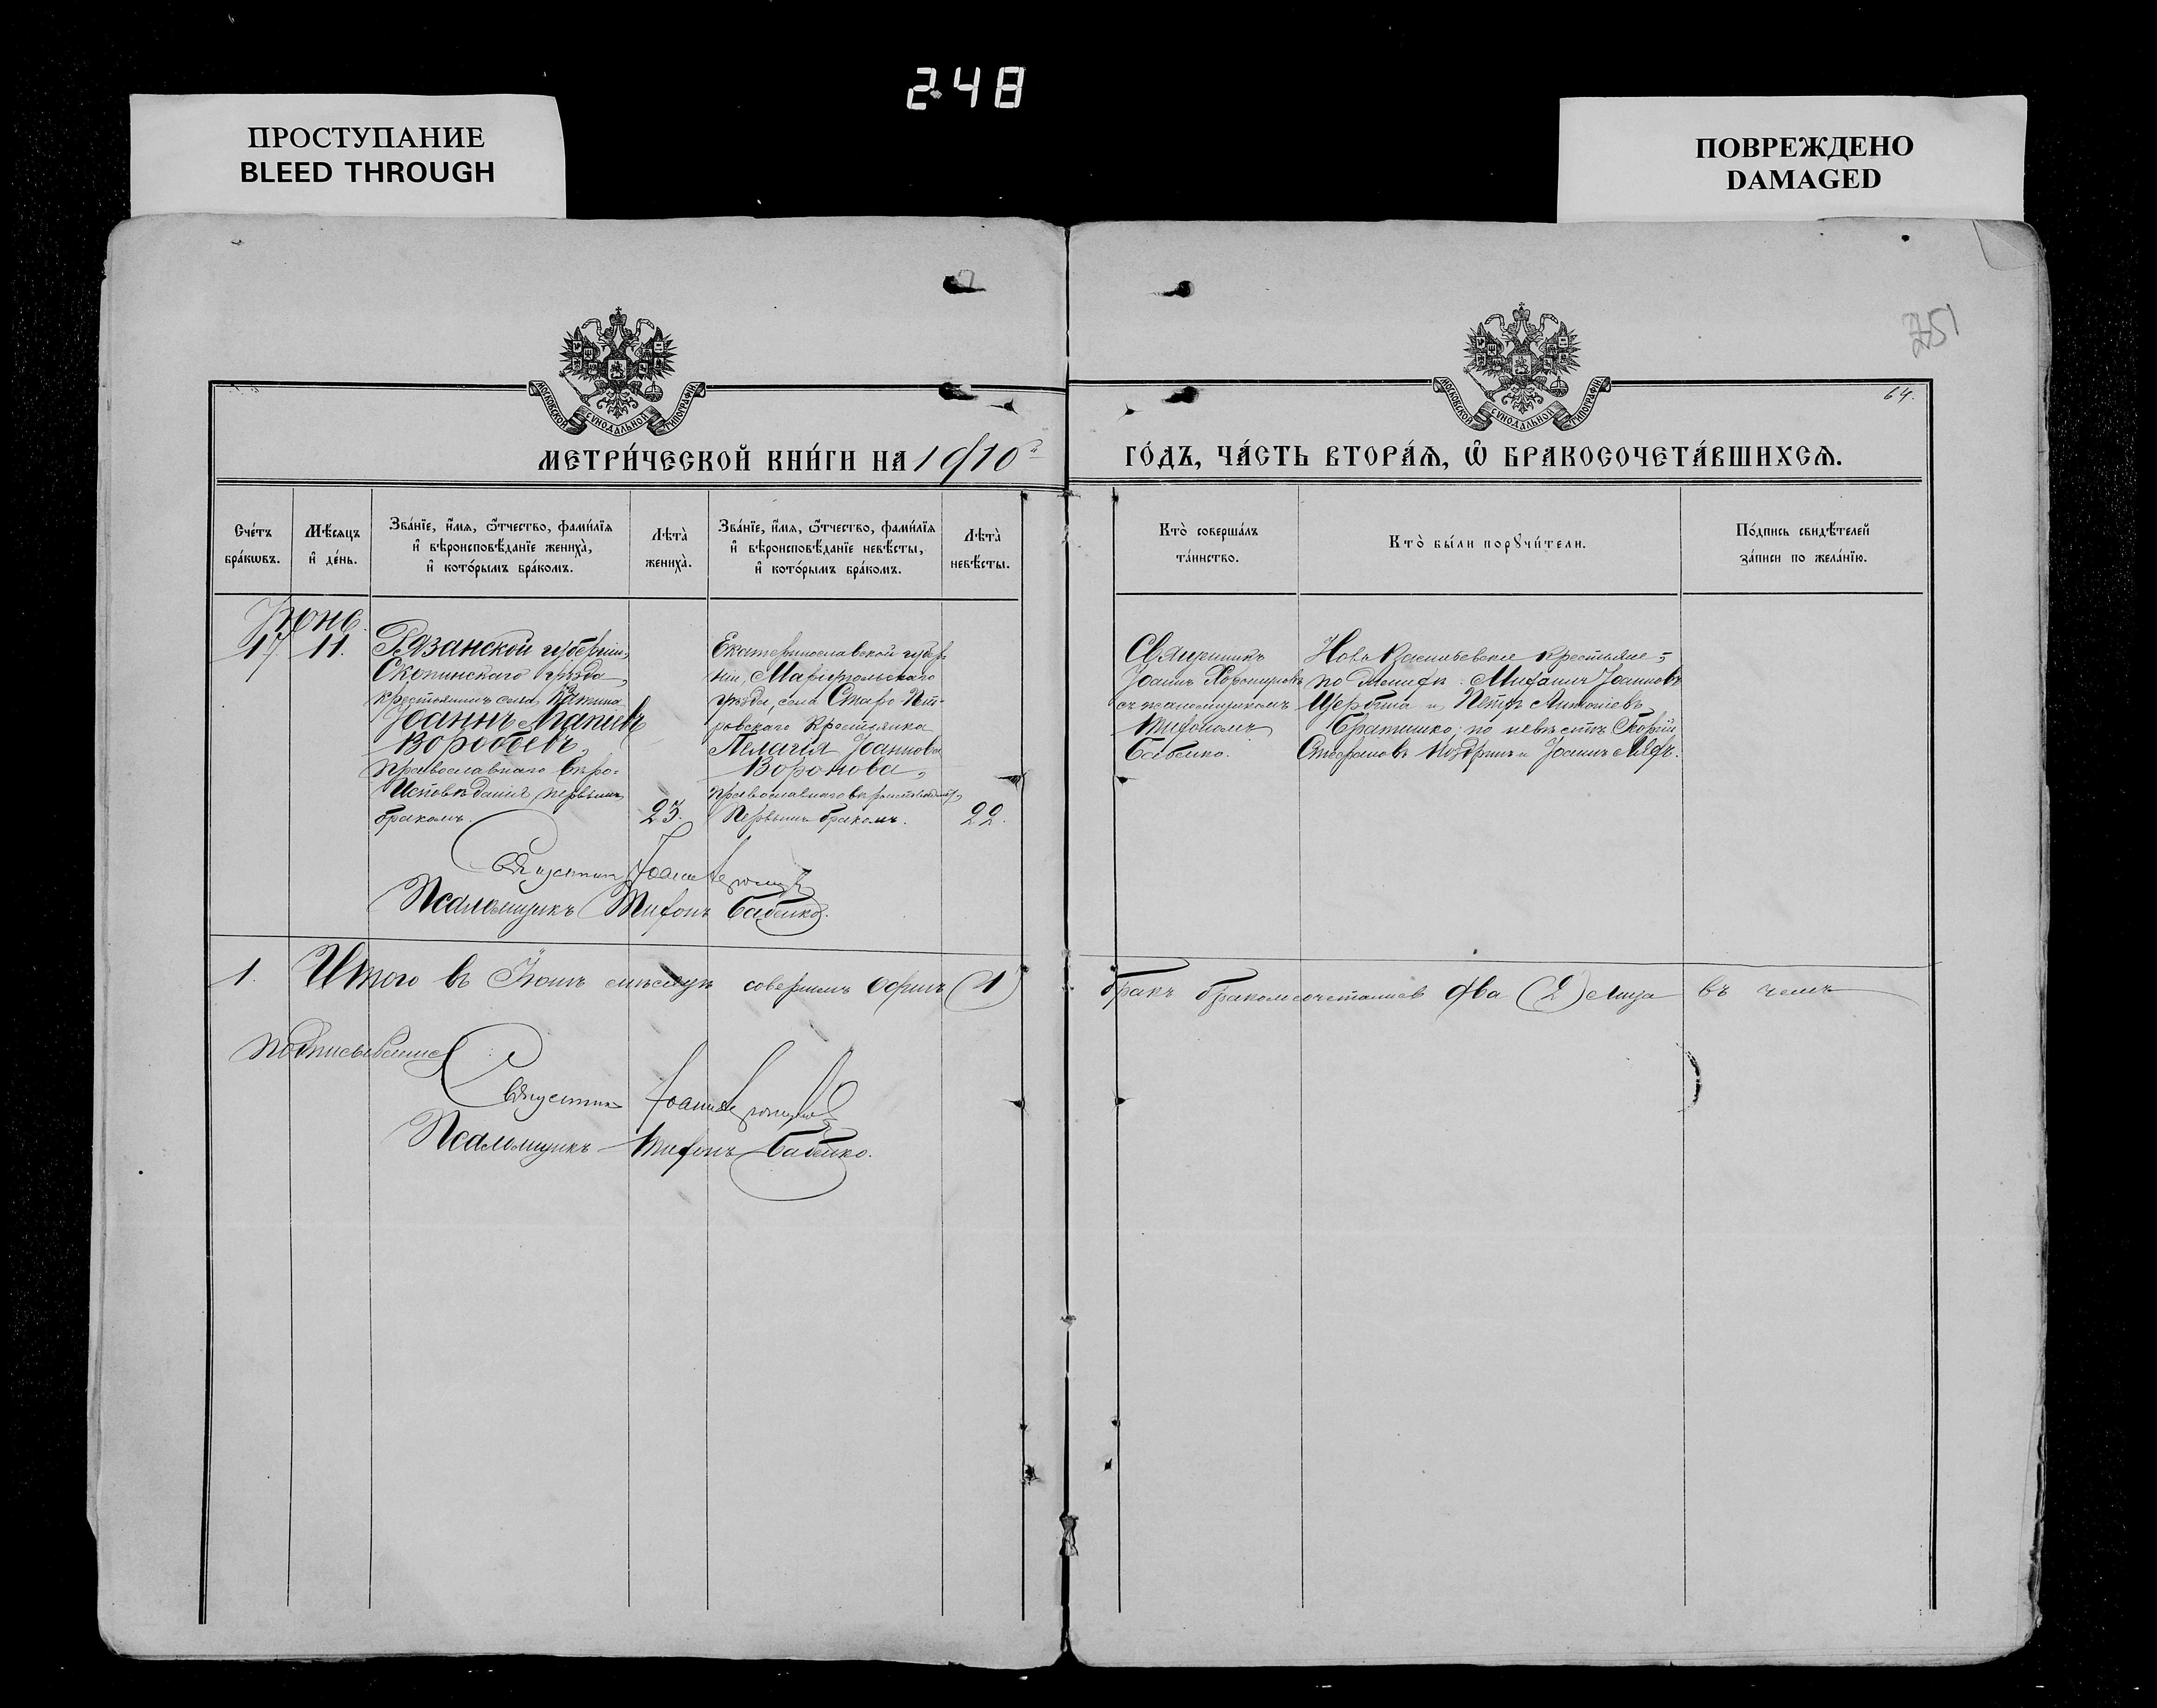 248
ПРОСТУПАНИЕ
BLEED THROUGH
ПОВРЕЖДЕНО
DAMAGED
251
64.
МОСКОВСКОЙ СѴНОДАЛЬНОЙ ТИПОГРАФІИ
МОСКОВСКОЙ СѴНОДАЛЬНОЙ ТИПОГРАФІИ
МЕТРИ́ЧЕСКОЙ КНИ́ГИ НА 1910й
ГО́ДЪ, ЧА́СТЬ ВТОРА́Ѧ, Ѡ҆ БРАКОСОЧЕТА́ВШИХСѦ.
Сче́тъ
бра́кωвъ.
Мѣ́сѧцъ
и҆ де́нь.
Зва́нїе, и҆́мѧ, ѻ҆́тчество, фами́лїѧ
и҆ вѣроисповѣ́данїе жениха̀,
и҆ кото́рымъ бра́комъ.
Лѣта̀
жениха̀.
Зва́нїе, и҆́мѧ, ѻ҆́тчество, фами́лїѧ
и҆ вѣроисповѣ́данїе невѣ́сты,
и҆ кото́рымъ бра́комъ.
Лѣта̀
невѣ́сты.
Кто̀ соверша́лъ
та́инство.
Кто̀ бы́ли порꙋчи́тели.
По́дпись свидѣ́телей
за́писи по жела́нїю.
Іюнь.
17. 11.
Рязанской губерніи,
Скопинскаго уѣзда,
крестьянинъ села
Іоаннъ
Воробьевъ,
православнаго вѣро-
исповѣданія, первымъ
бракомъ.
23.
Екатеринославской губер-
ніи, Маріупольскаго
уѣзда, села Старо-Пет-
ровскаго крестьянка
Пелагія Іоаннова
Воронова,
православнаго вѣроисповѣданія,
первымъ бракомъ.
22.
Священникъ
Іоаннъ
съ псаломщикомъ
Трифономъ
Бабенко.
Ново-Васильевские крестьяне:
по женихѣ: Митрофанъ Іоанновъ
Щербина и Петръ Антоніевъ
Братишко; по невѣстѣ
Стефановъ и Іоаннъ
Священникъ Іоаннъ
Псаломщикъ Трифонъ Бабенко.
1. Итого въ Іюнѣ мѣсяцѣ совершенъ одинъ (1)
бракъ бракомъ сочеталися два (2) лица въ чемъ
подписываемся
Священникъ Іоаннъ
Псаломщикъ Трифонъ Бабенко.